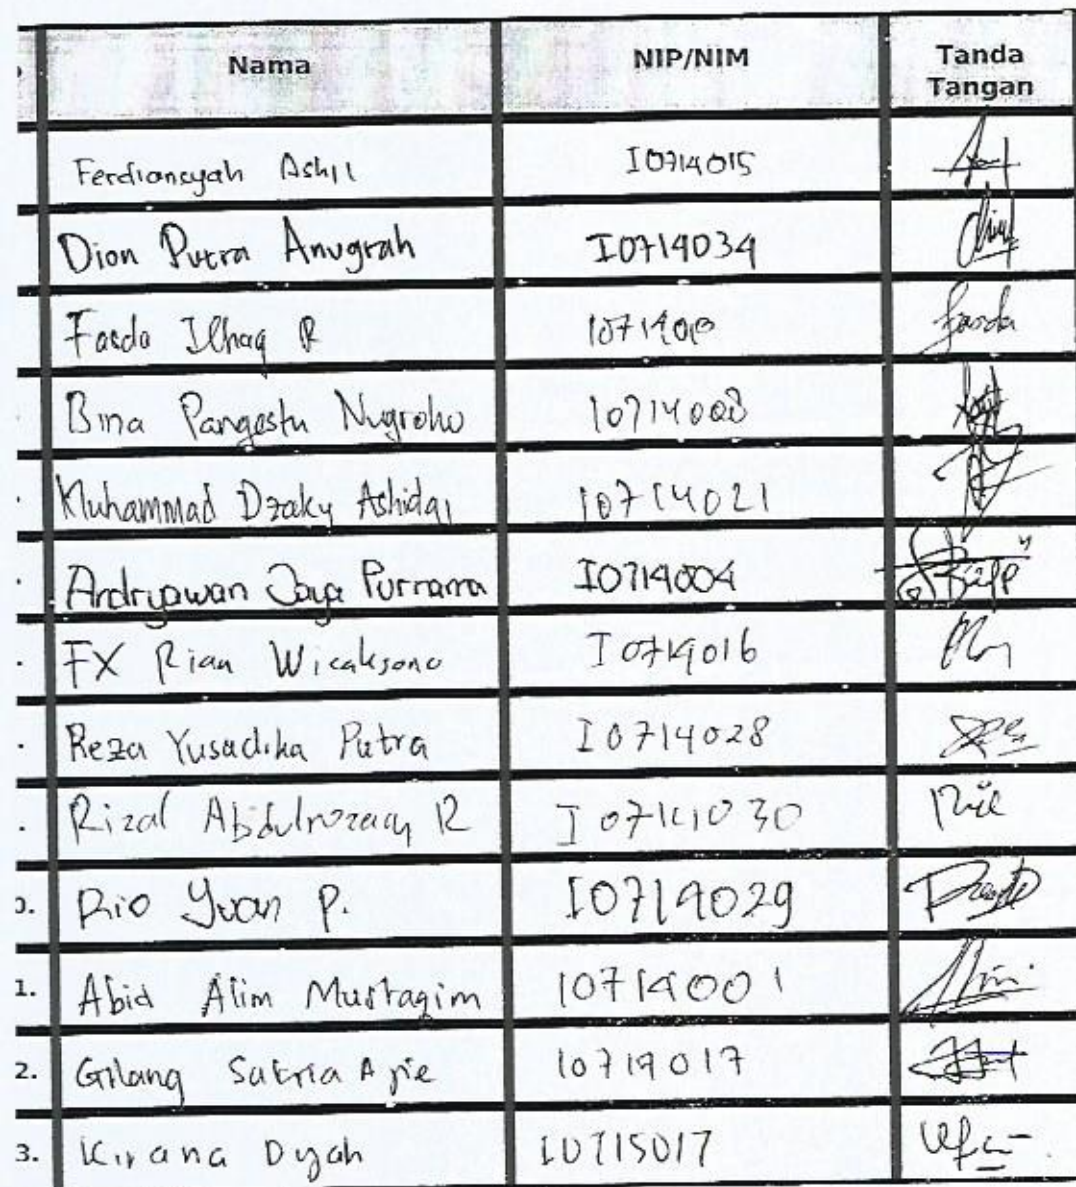 Nama NIP/NIM Tanda Tangan
Ferdiansyah Ashil I0714015
Dion Putra Anugrah I0714034
Farda Ilhaq R
Bina Pangestu Nugroho I0714008
Muhammad Dzaky Ashidqi I0714021
Andryawan Jaya Purnama I0714004
FX Rian Wicaksono I0714016
Reza Yusadika Putra I0714028
Rizal Abdulrozaq R I0714030
0. Rio Yuan P. I0714029
1. Abid Alim Mustaqim I0714001
2. Gilang Satria Ajie I0714017
3. Kirana Dyah I0715017